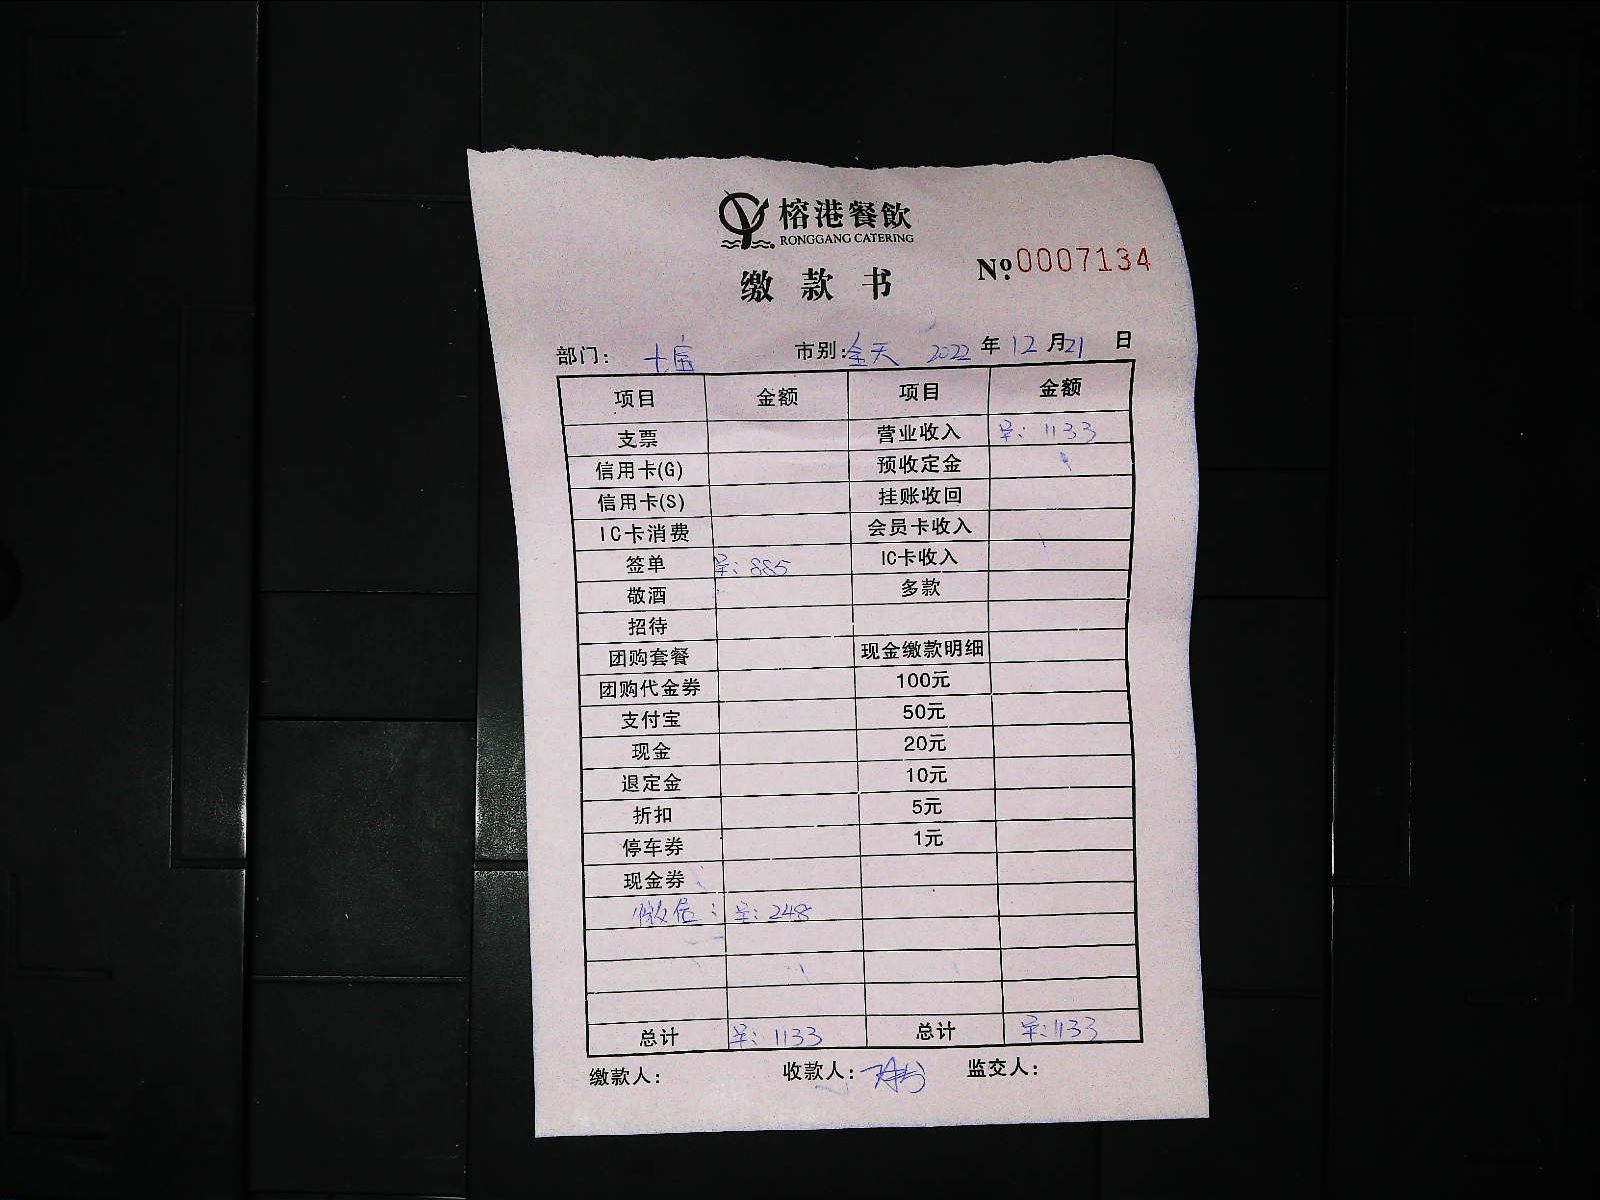 榕港餐飲
RONGGANG CATERING
缴款书
№ 0007134
部门: 市别: 全天 2022 年 12 月 21 日
项目 金额 项目 金额
支票 营业收入 早: 1133
信用卡(G) 预收定金
信用卡(S) 挂账收回
IC卡消费 会员卡收入
签单 早: 885 IC卡收入
敬酒 多款
招待
团购套餐 现金缴款明细
团购代金券 100元
支付宝 50元
现金 20元
退定金 10元
折扣 5元
停车券 1元
现金券
微信: 早: 248
总计 早: 1133 总计 早: 1133
缴款人: 收款人: 监交人: